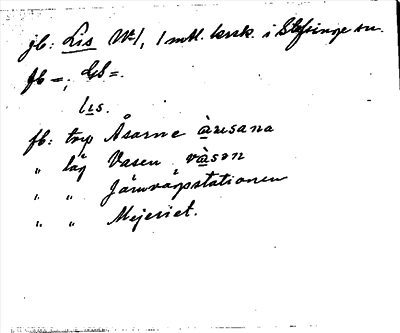 jb: Lis Nr 1, 1 mtl. krsk. i Slefringe sn.
fb =; Gb =.
lıs.
fb: trp Åsarne àusana
„ läg Vasen vàsən
„ „ Järnvägsstationen
„ „ Mejeriet.